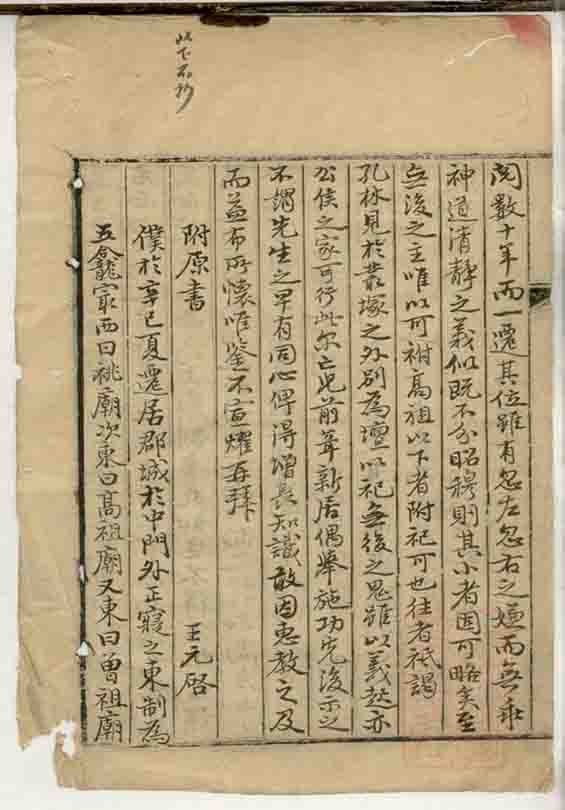 此下不抄
閱數十年而一遷其位雖有忽左忽右之嫌而無乖
神道清靜之義似既不分昭穆則其小者固可略矣至
無後之主唯以可祔高祖以下者附祀可也往者祇謁
孔林見於叢塚之外別為壇以祀無後之鬼雖以義起亦
公侯之家可行此尔亡兒前葺新居偶舉施功先後示之
不謂先生之早有同心俾得增長知識敢因惠教之及
而益布所懷唯鑒不宣燿再拜
附原書 王元启
僕於辛巳夏遷居郡城於中門外正寢之東制為
五龕最西曰祧廟次東曰高祖廟又東曰曾祖廟